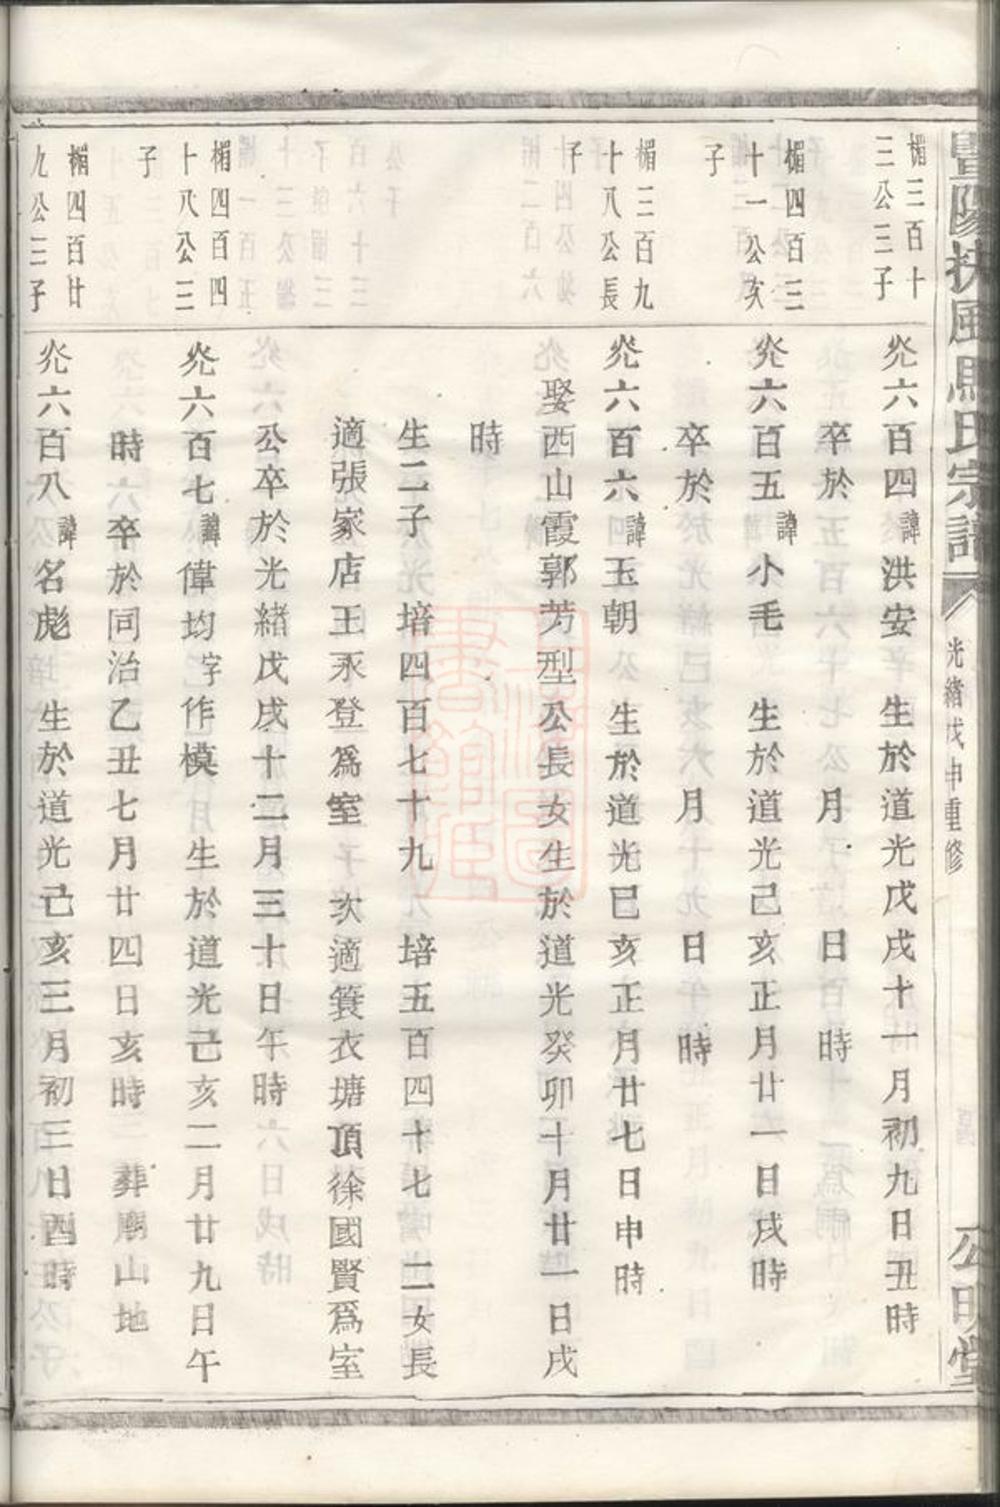 暨陽扶風馬氏宗譜
光緒戊申重修
公明堂
楣三百十
三公三子
尣六百四諱洪安 生於道光戊戌十一月初九日丑時
卒於 月 日 時
楣四百三
十一公亥
子
尣六百五諱小毛 生於道光己亥正月廿一日戌時
卒於 月 日 時
楣三百九
十八公長
子
尣六百六諱玉朝 生於道光己亥正月廿七日申時
娶西山霞郭芳型公長女生於道光癸卯十月廿一日戌
時
生二子 培四百七十九 培五百四十七 二女長
適張家店王永登爲室 次適簑衣塘頂徐國賢爲室
公卒於光緒戊戌十二月三十日午時
楣四百四
十八公三
子
尣六百七諱偉均字作模 生於道光己亥二月廿九日午
時 卒於同治乙丑七月廿四日亥時 葬廟山地
楣四百廿
九公三子
尣六百八諱名彪 生於道光己亥三月初三日酉時